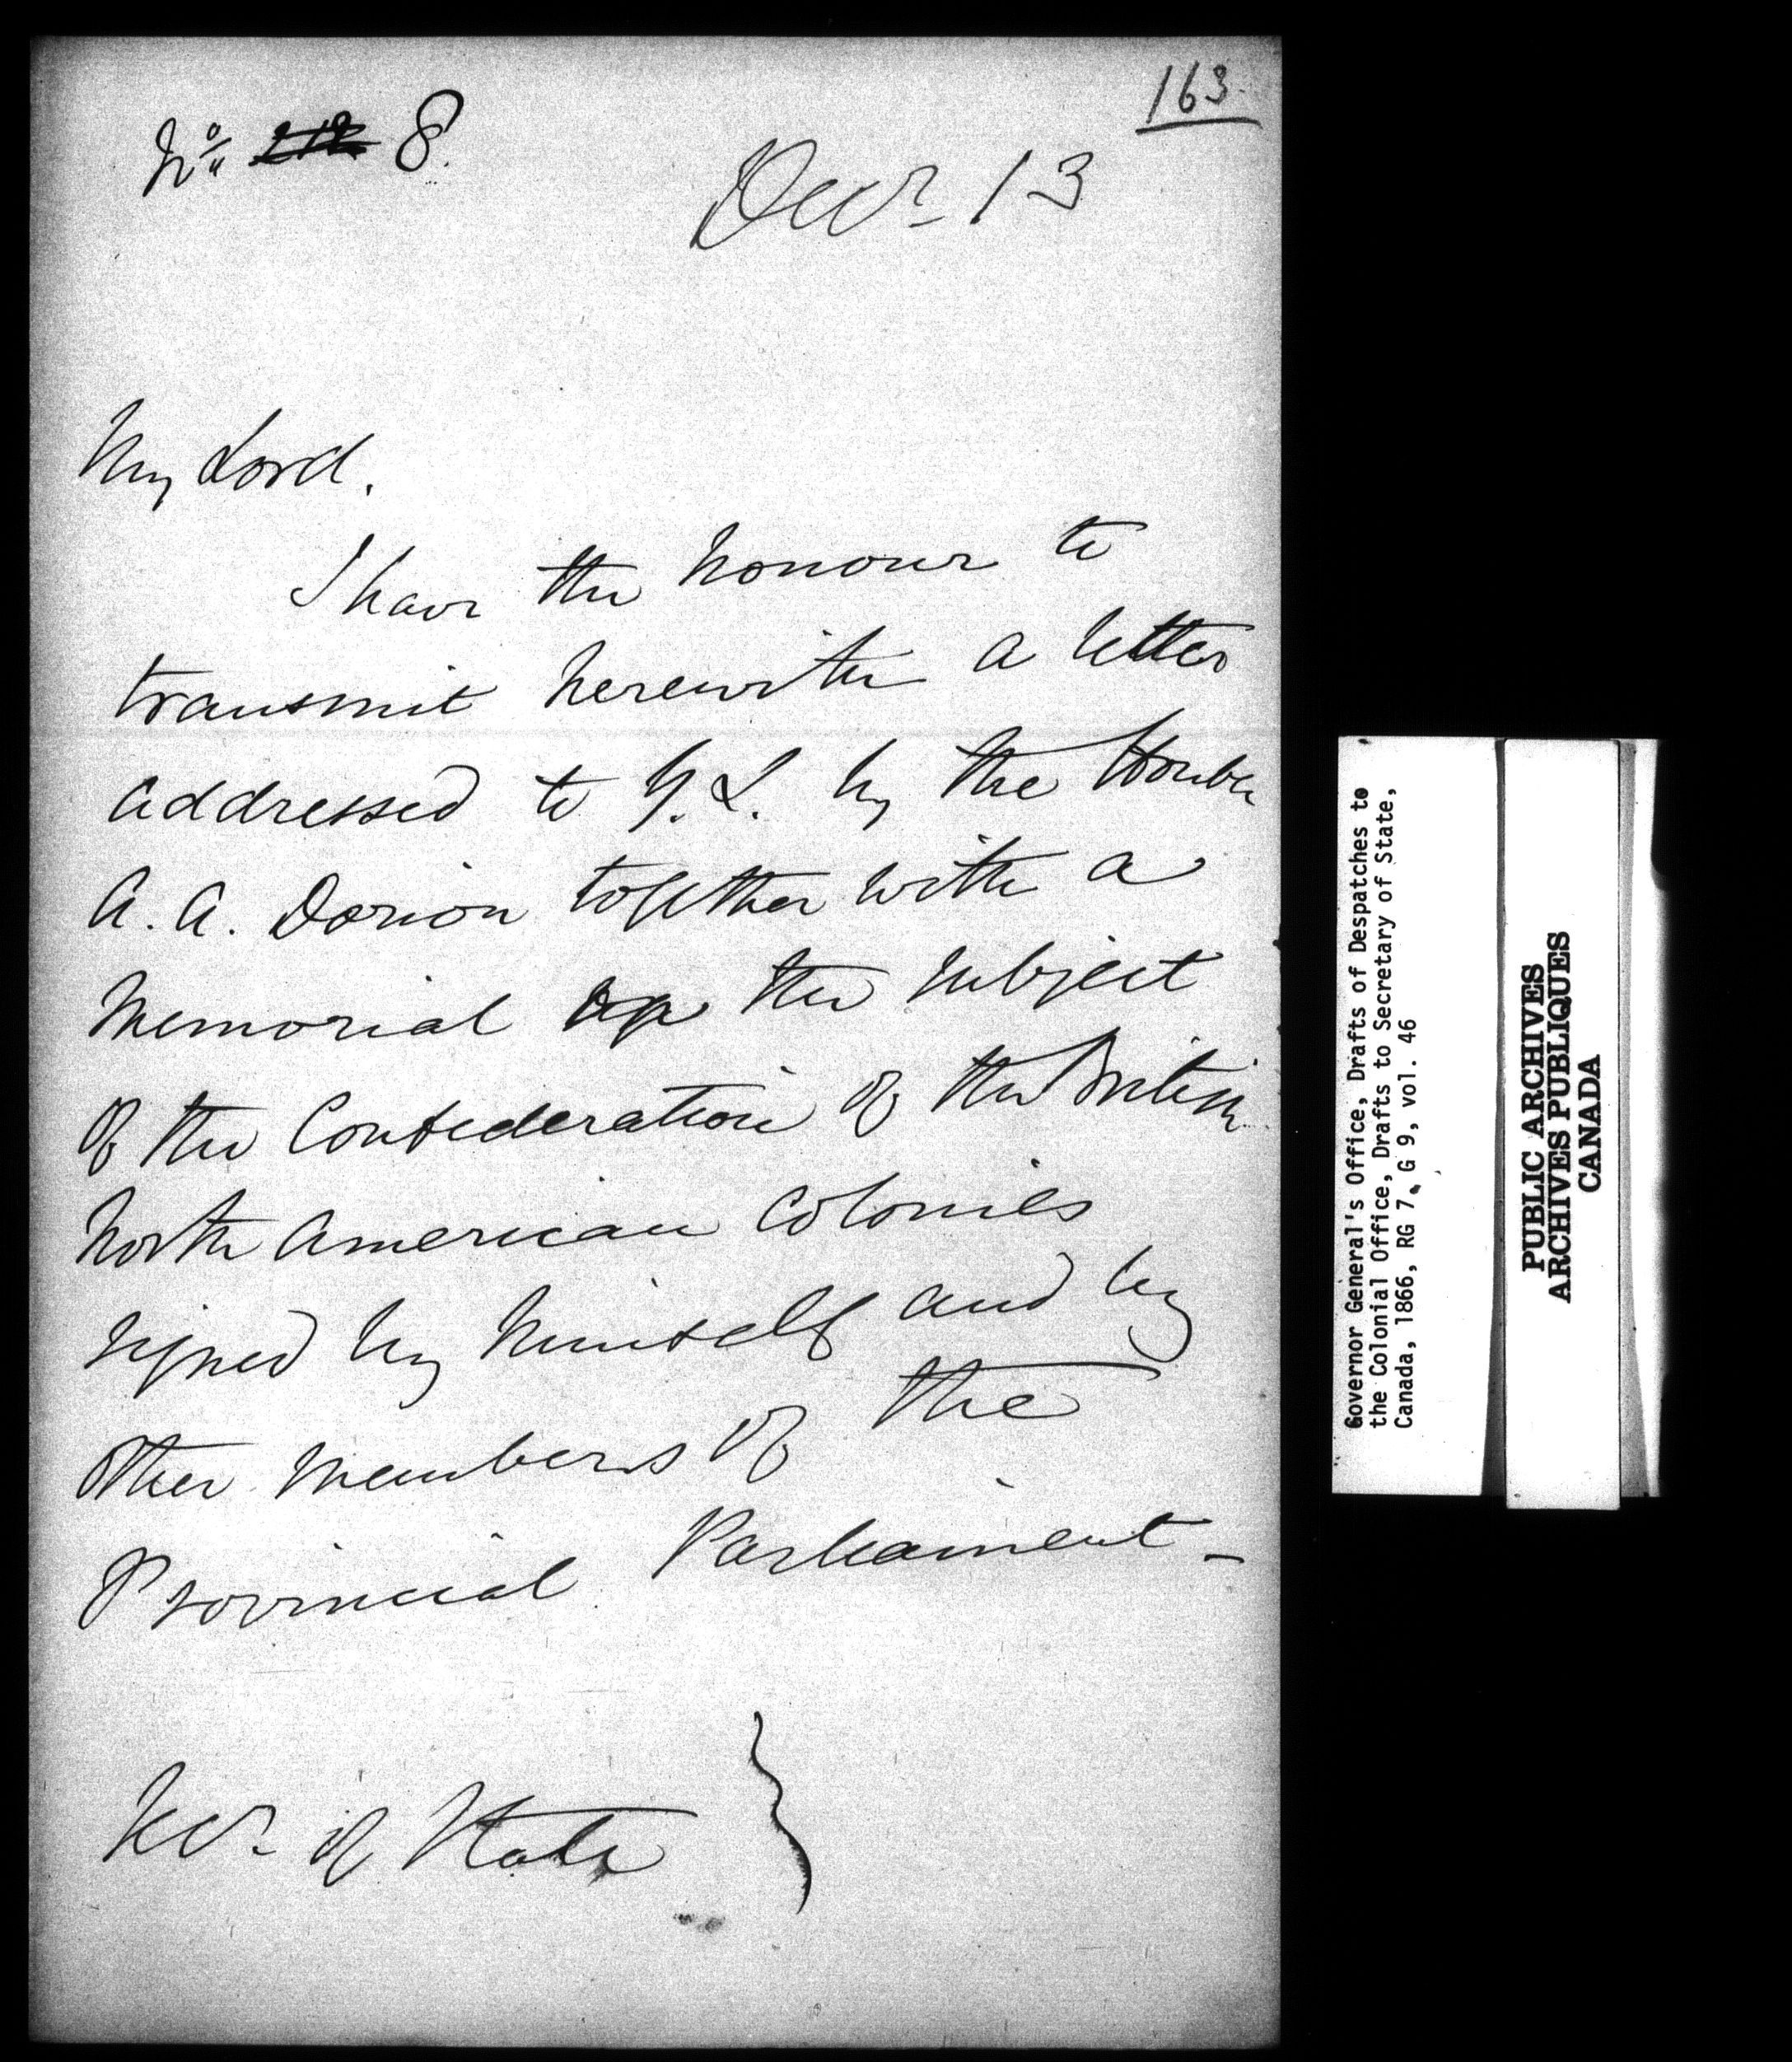 163
No. 8.
Decr 13
My Lord.
I have the honour to
transmit herewith a letter
addressed to Y.L. by the Honble
A. A. Dorion together with a
Memorial on the subject
of the Confederation of the British
North American Colonies
signed by himself and by
other members of the
Provincial Parliament -
Secr. of State
Governor General's Office, Drafts of Despatches to
the Colonial Office, Drafts to Secretary of State,
Canada, 1866, RG 7, G 9, vol. 46
PUBLIC ARCHIVES
ARCHIVES PUBLIQUES
CANADA